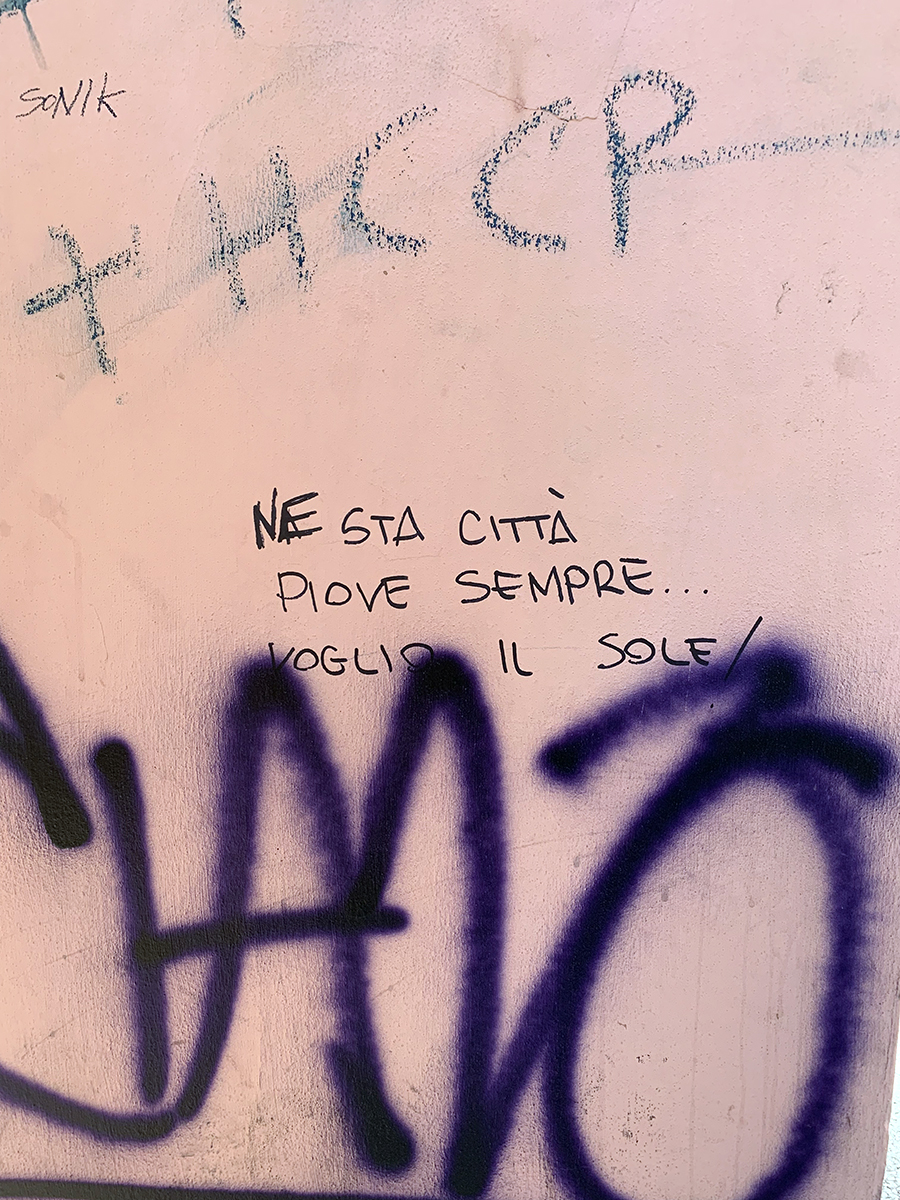 SONIK
+ HCCP
NE STA CITTÀ
PIOVE SEMPRE...
VOGLIO IL SOLE/